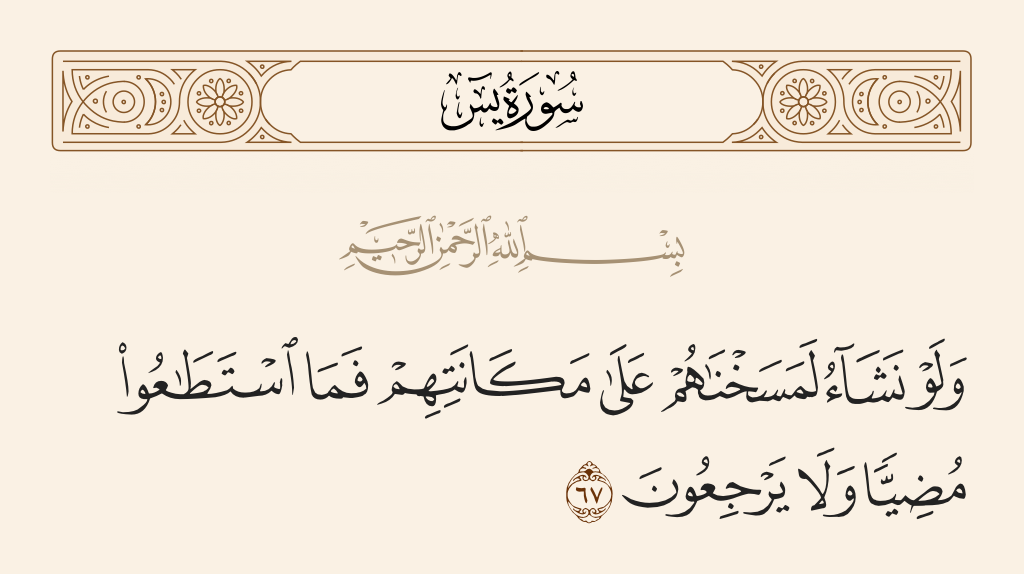 سُورَةُ يسٓ
بِسْمِ ٱللَّهِ ٱلرَّحْمَٰنِ ٱلرَّحِيمِ
وَلَوْ نَشَآءُ لَمَسَخْنَٰهُمْ عَلَىٰ مَكَانَتِهِمْ فَمَا ٱسْتَطَٰعُوا۟
مُضِيًّا وَلَا يَرْجِعُونَ ٦٧